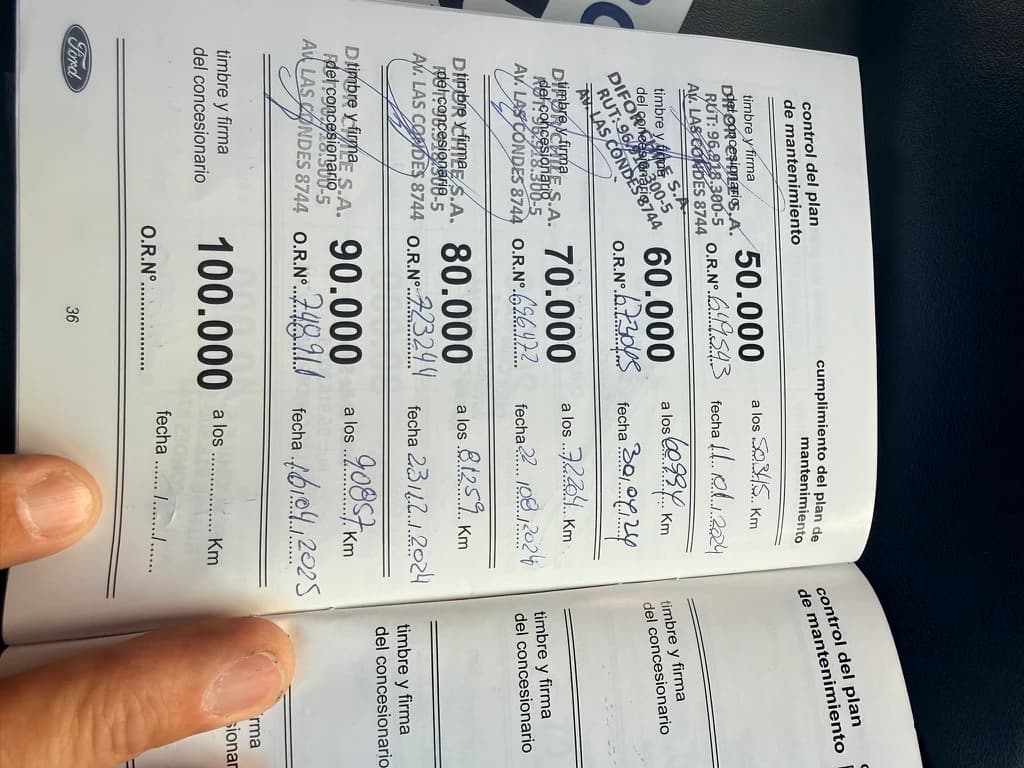 control del plan
de mantenimiento
cumplimiento del plan de
mantenimiento
timbre y firma
del concesionario
DIFOR CHILE S.A.
RUT: 96.918.300-5
AV. LAS CONDES 8744
50.000
O.R.Nº 649543
a los 50345 Km
fecha 11/01/2024
timbre y firma
del concesionario
DIFOR CHILE S.A.
RUT: 96.918.300-5
AV. LAS CONDES 8744
60.000
O.R.Nº
a los 60994 Km
fecha 30/04/24
timbre y firma
del concesionario
DIFOR CHILE S.A.
RUT: 96.918.300-5
AV. LAS CONDES 8744
70.000
O.R.Nº 696472
a los 72264 Km
fecha 22/08/2024
timbre y firma
del concesionario
DIFOR CHILE S.A.
RUT: 96.918.300-5
AV. LAS CONDES 8744
80.000
O.R.Nº 723244
a los 81259 Km
fecha 23/12/2024
timbre y firma
del concesionario
DIFOR CHILE S.A.
RUT: 96.918.300-5
AV. LAS CONDES 8744
90.000
O.R.Nº 748911
a los 90857 Km
fecha 16/04/2025
timbre y firma
del concesionario
100.000
O.R.Nº ...............
a los ............... Km
fecha ....../....../......
Ford
36
control del plan
de mantenimiento
timbre y firma
del concesionario
timbre y firma
del concesionario
timbre y firma
del concesionario